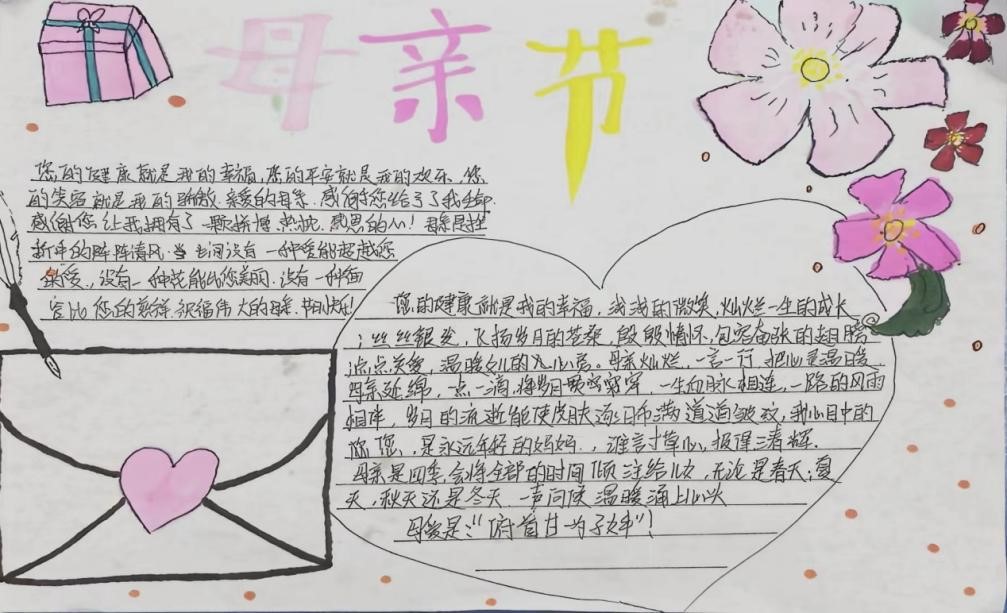 母亲节
您的健康就是我的幸福,您的平安就是我的欢乐,您
的笑容就是我的骄傲.亲爱的母亲.感谢您给予了我生命
感谢您让我拥有了一颗拼搏.热忱.感恩的心!母亲是拄
的阵阵清风.当世间没有一种爱能超越您
的爱.,没有一种花能比您美丽.没有一种面
容比您的慈祥.祝福伟大的母亲.节日快乐!
您的健康就是我的幸福,浅浅的微笑,灿烂一生的成长
;丝丝银发,飞扬岁月的苍桑,殷殷情怀,包容奋张的翅膀
点点关爱,温暖女儿的心房。母亲灿烂,一言一行,把心灵温暖.
母亲延绵,点一滴,将岁月贯穿,一生血脉相连,一路的风雨
相伴,岁月的流逝能使皮肤逐日布满道道皱纹,我心目中的
您,是永远年轻的妈妈.,谁言寸草心,报得三春辉.
母亲是四季,会将全部的时间倾注给儿女,无论是春天;夏
天,秋天还是冬天.一声问侯温暖涌上心头
母爱是:"俯首甘为子女"!